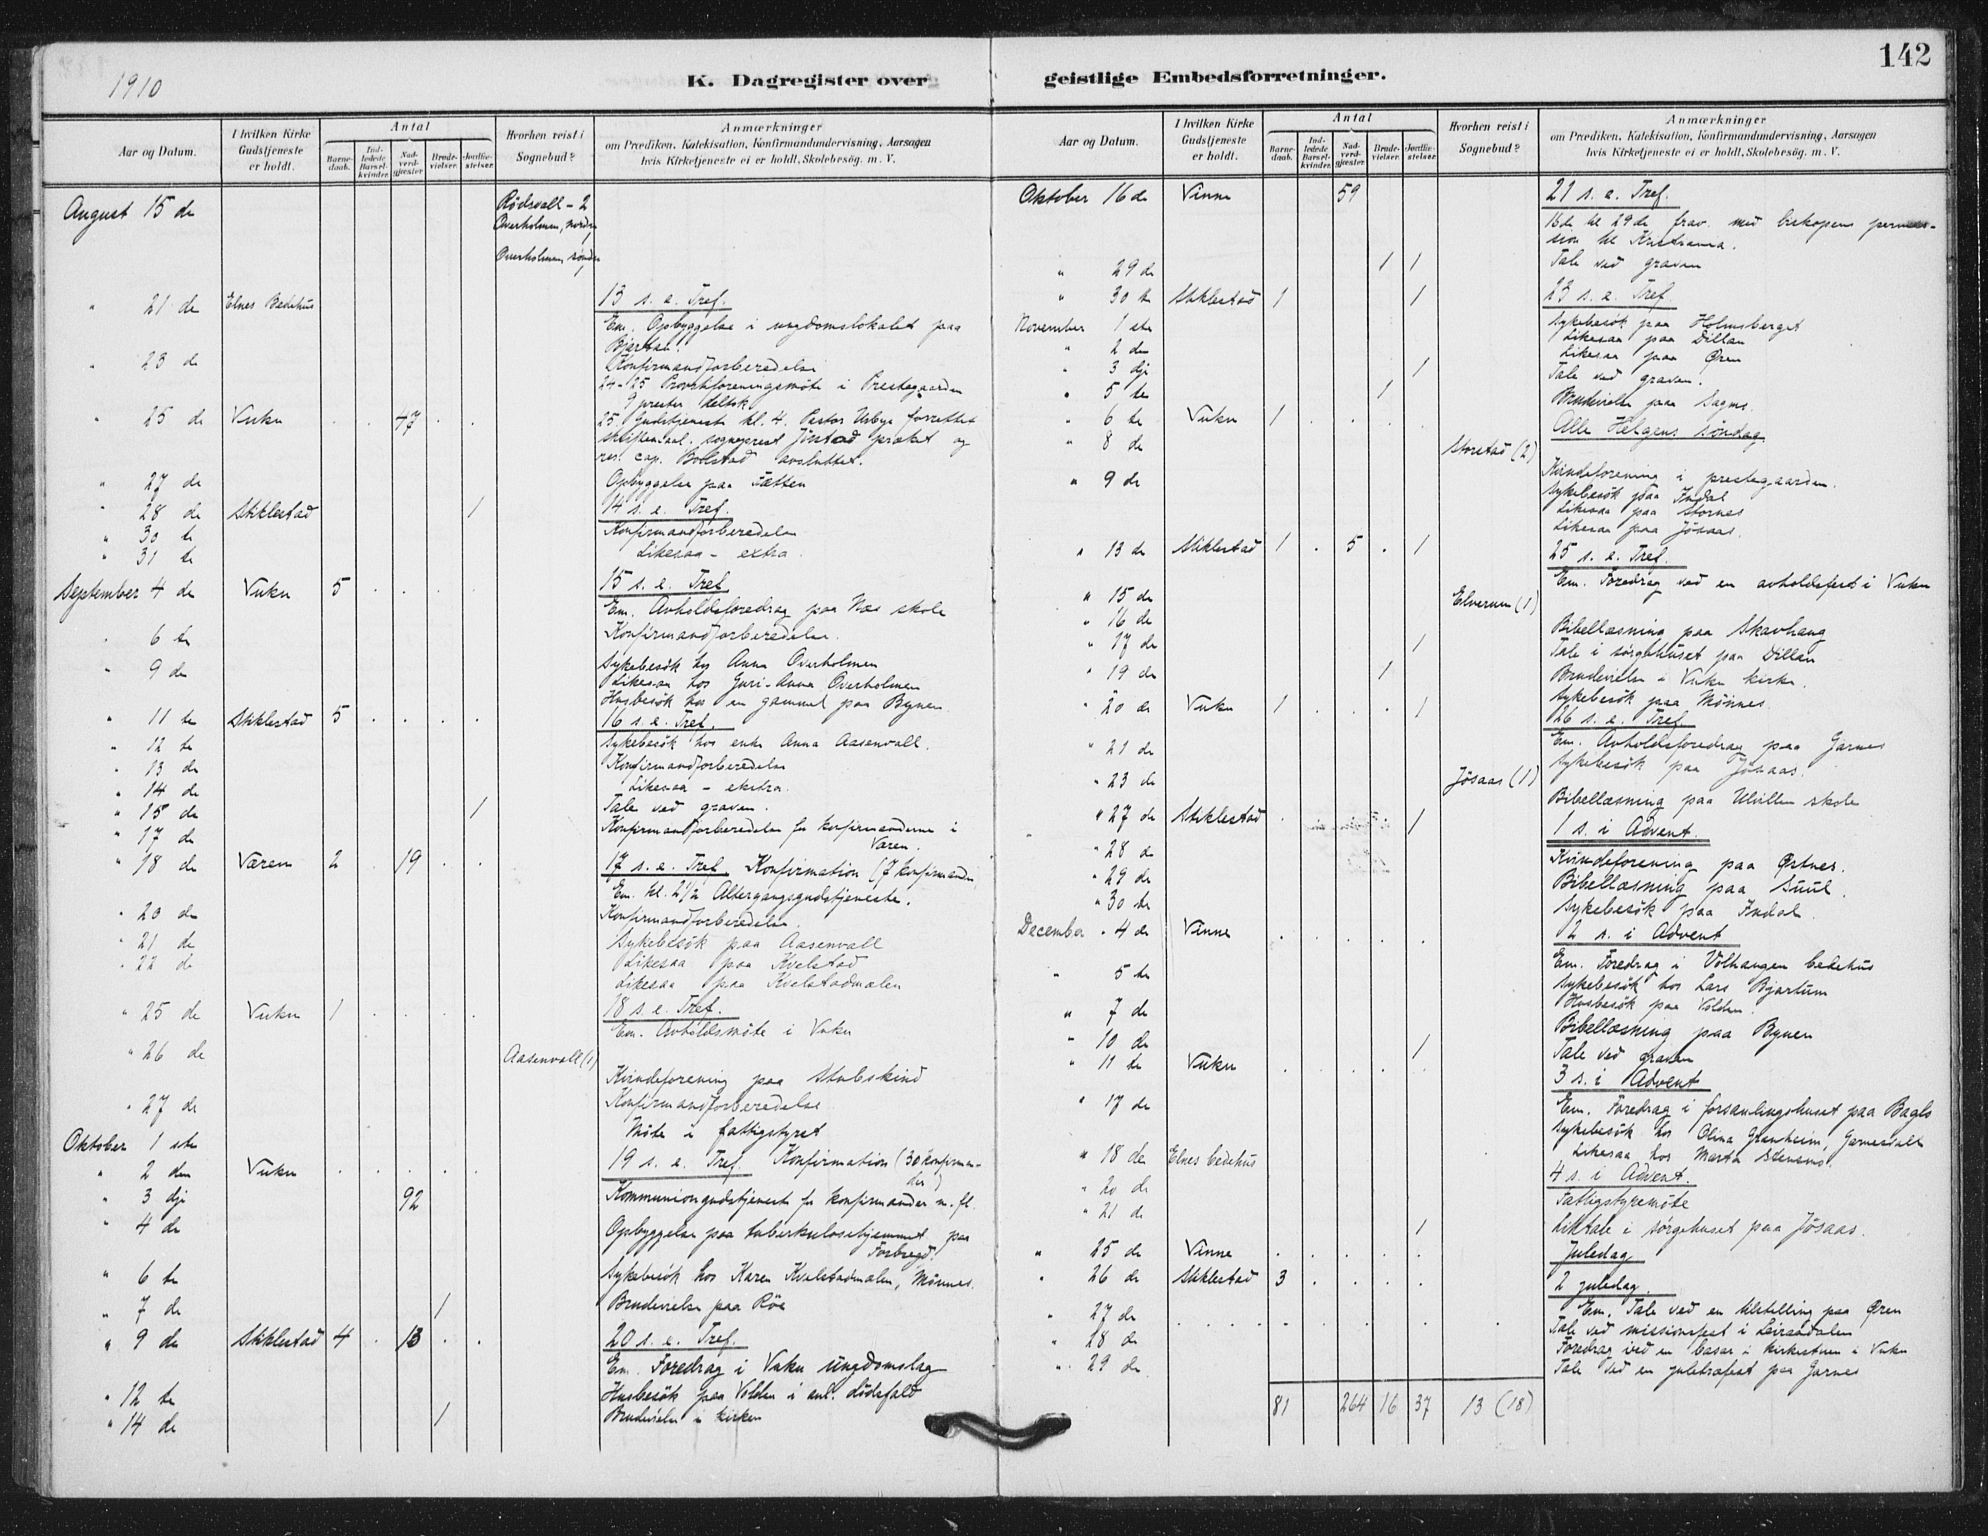 1910
K. Dagregister over
Aar og Datum.
I hvilken Kirke Gudstjeneste er holdt.
Antal
Barnedaab.
Indledede Barselkvinder.
Nadverdgjæster.
Brudevielser.
Jordfæstelser.
Hvorhen reist i Sognebud?
Anmærkninger
om Prædiken, Katekisation, Konfirmandundervisning, Aarsagen
hvis Kirketjeneste ei er holdt, Skolebesøg. m. V.
August 15 de Rödsvall - 2
Overholmen, nordre
Overholmen, söndre
" 21 de Elnes Bedehus 13 s. e. Tref.
Em. Opbyggelse i ungdomslokalet paa
Bjartan.
" 23 de Konfirmandforberedelse
24-25 Provstiforeningsmöte i Prestegaarden
9 prester deltok
" 25 de Vuku . . 47 . . 25. Gudstjeneste kl. 4. Pastor Urbye forrettet
skriftemaal, sogneprest Jörstad præket og
res. cap. Bolstad avsluttet.
" 27 de Opbyggelse paa Tætten
" 28 de Stiklestad 1 14 s. e. Tref.
" 30 te Konfirmandforberedelse
" 31 te Likesaa - extra.
September 4 de Vuku 5 . . . . 15 s. e. Tref
Em. Avholdsforedrag paa Næs skole
" 6 te Konfirmandforberedelse.
" 9 de Sykebesök hos Anna Overholmen
Likesaa hos Guri-Anna Overholmen
Husbesök hos en gammel paa Bynen
" 11 te Stiklestad 5 . . . . 16 s. e. Tref.
" 12 te Sykebesök hos enke Anna Aasenvall.
" 13 de Konfirmandforberedelse
" 14 de Likesaa - ekstra.
" 15 de 1 Tale ved graven.
" 17 de Konfirmandforberedelse for konfirmanderne i
Væren.
" 18 de Væren 2 . 19 . . 17 s. e. Tref. Konfirmation (7 konfirmander
Em. kl. 2 1/2 Altergangsgudstjeneste.
" 20 de Konfirmandforberedelse.
" 21 de Sykebesök paa Aasenvall
" 22 de Likesaa paa Kvelstad
Likesaa paa Kvelstadmælen
" 25 de Vuku 1 . . . . 18 s. e. Tref.
Em. Avholdsmöte i Vuku
" 26 de Aasenvall (1)
Kvindeforening paa Stubskind
" 27 de Konfirmandforberedelse
Oktober 1 ste Möte i fattigstyret
" 2 den Vuku . . . . . 19 s. e. Tref. Konfirmation (30 konfirman-
der)
" 3 dje 92 Kommuniongudstjeneste for konfirmander m. fl.
" 4 de Opbyggelse paa tuberkulosehjemmet paa
Forbregd.
" 6 te Sykebesök hos Karen Kvelstadmælen, Mönnes.
" 7 de 1 Brudevielse paa Röe
" 9 de Stiklestad 4 . 13 . . 20 s. e. Tref.
Em. Foredrag i Vuku ungdomslag
" 12 te Husbesök paa Volden i anl. dödsfald
" 14 de 1 Brudevielse i kirken
142
geistlige Embedsforretninger.
Aar og Datum.
I hvilken Kirke Gudstjeneste er holdt.
Antal
Barnedaab.
Indledede Barselkvinder.
Nadverdgjæster.
Brudevielser.
Jordfæstelser.
Hvorhen reist i Sognebud?
Anmærkninger
om Prædiken, Katekisation, Konfirmandundervisning, Aarsagen
hvis Kirketjeneste ei er holdt, Skolebesøg. m. V.
Oktober 16 de Vinne 59 21 s. e. Tref.
18de til 29de frav. med biskopens permis-
sion til Kristiania.
" 29 de 1 1 Tale ved graven
" 30 te Stiklestad 1 1 23 s. e. Tref.
November 1 ste Sykebesök paa Holmsberget
" 2 den Likesaa paa Dillan
Likesaa paa Ören
" 3 dje 1 Tale ved graven.
" 5 te 1 Brudevielse paa Sagmo.
" 6 te Vuku 1 . . . . Alle Helgens söndag
" 8 de Storstad (2)
Kvindeforening i prestegaarden.
" 9 de Sykebesök paa Indal
Likesaa paa Stornes
Likesaa paa Jösaas.
" 13 de Stiklestad 1 . 5 . 1 25 s. e. Tref.
Em. Foredrag ved en avholdsfest i Vuku
" 15 de Elverum (1)
" 16 de Bibellæsning paa Skavhaug
" 17 de 1 Tale i sörgehuset paa Dillan
" 19 de 1 Brudevielse i Vuku kirke.
Sykebesök paa Mönnes.
" 20 de Vuku 1 . . . 1 26 s. e. Tref.
Em. Avholdsforedrag paa Garnes
" 21 de Sykebesök paa Jösaas.
" 23 de Jösaas (1)
Bibellæsning paa Ulvillen skole
" 27 de Stiklestad . 1 1 s. i Advent.
" 28 de Kvindeforening paa Östnes.
" 29 de Bibellæsning paa Suul.
" 30 te Sykebesök paa Indal.
December 4 de Vinne . . . . . 2 s. i Advent
Em. Foredrag i Volhaugen bedehus
" 5 te Sykebesök hos Lars Bjartum
Husbesök paa Volden.
" 7 de Bibellæsning paa Bynen
" 10 de 1 Tale ved graven
" 11 te Vuku . . . . . 3 s. i Advent
Em. Foredrag i forsamlingshuset paa Baglo
" 17 de Sykebesök hos Olina Granheim, Garnesdalen
Likesaa hos Marta Stensmo.
" 18 de Elnes bedehus 4 s. i Advent.
" 20 de Fattigstyremöte
" 21 de 1 Liktale i sörgehuset paa Jösaas.
" 25 de Vinne . . . . . Juledag.
" 26 de Stiklestad 3 . . . . 2 juledag.
Em. Tale ved en tilstelling paa Ören
" 27 de Tale ved missionsfest i Leirasdalen
" 28 de Foredrag ved en basar i kirkestuen i Vuku
" 29 de Tale ved en juletræfest paa Garnes
81 264 16 37 13 (18)